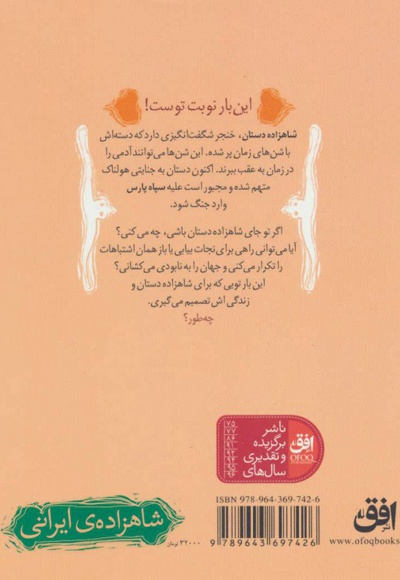 این بار نوبت توست!
شاهزاده دستان، خنجر شگفت‌انگیزی دارد که دسته‌اش
با شن‌های زمان پر شده. این شن‌ها می‌توانند آدمی را
در زمان به عقب ببرند. اکنون دستان به جنایتی هولناک
متهم شده و مجبور است علیه سپاه پارس
وارد جنگ شود.
اگر تو جای شاهزاده دستان باشی، چه می‌کنی؟
آیا می‌توانی راهی برای نجات بیابی یا باز همان اشتباهات
را تکرار می‌کنی و جهان را به نابودی می‌کشانی؟
این بار تویی که برای شاهزاده دستان و
زندگی‌اش تصمیم می‌گیری.
چه‌طور؟
ناشر
برگزیده
و تقدیری
سال‌های
افق
OFOQ
ISBN 978-964-369-742-6
9 789643 697426
شاهزاده‌ی ایرانی
۳۲۰۰۰ تومان
نشر افق
www.ofoqbooks